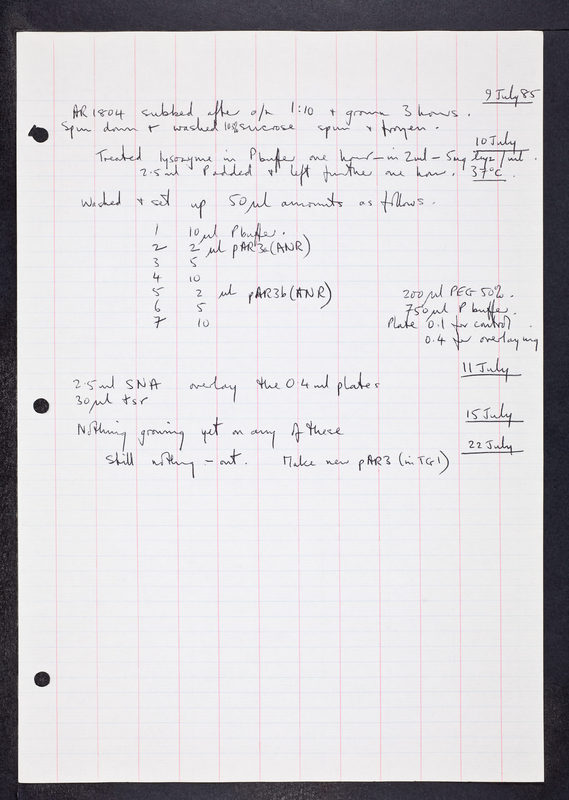 9 July 85
AR1804 subbed after o/n 1:10 + grown 3 hours.
Spin down + washed 10% sucrose spin + frozen.
10 July
Treated lysozyme in P buffer one hour - in 2ml - 5mg lyz/ml.
2.5ml P added + left further one hour. 37°C.
Washed + set up 50μl amounts as follows.
1 10μl P buffer.
2 2μl pAR3a (ANR)
3 5
4 10
5 2 μl pAR3b (ANR) 200μl PEG 50%.
6 5 750μl P buffer.
7 10 Plate 0.1 for control.
0.4 for overlaying
11 July
2.5ml SNA overlay the 0.4ml plates
30μl tsr
15 July
Nothing growing yet on any of these
22 July
Still nothing - out. Make new pAR3 (in TG1)